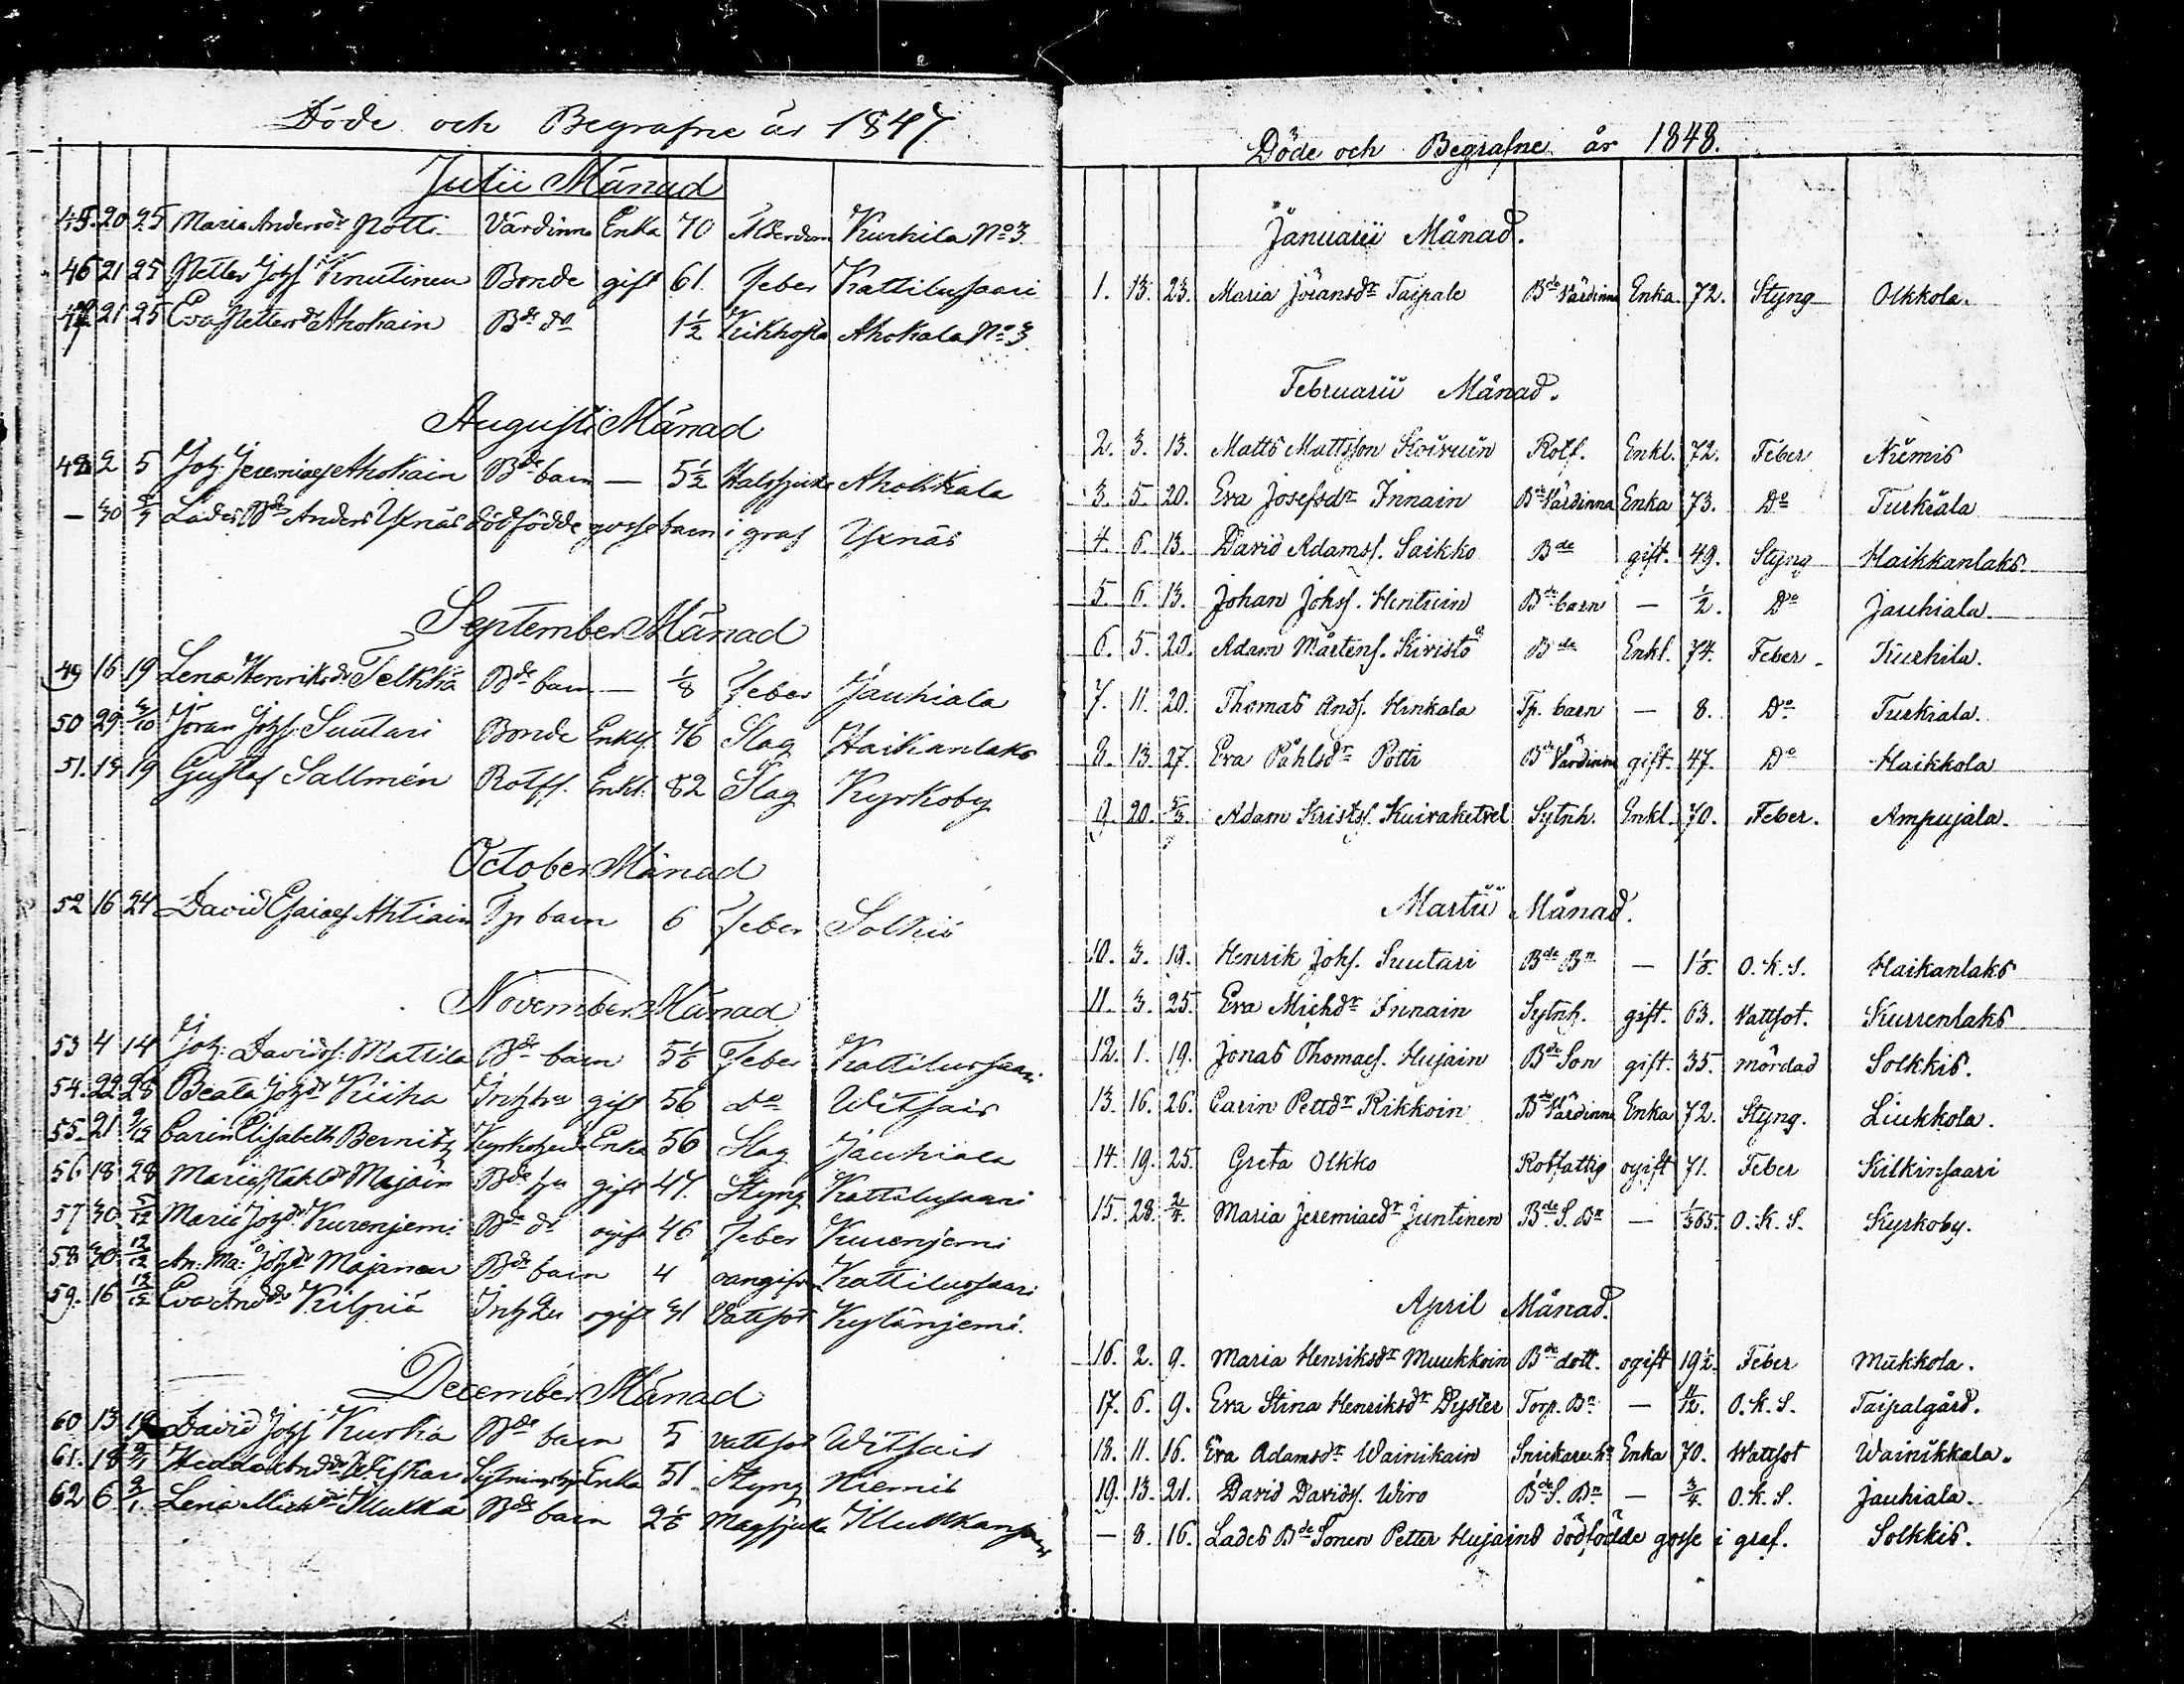 Döde och Begrafne år 1847
Julii Månad
45. 20 25 Maria Andersdr Potti Värdinna Enka 70 Ålderdom Kurhila No 3.
46 21 25 Petter Johs Knutinen Bonde gift 61. Feber Kattilusaari
47 21 25 Eva Pettersdr Ahokain Bde dr 1½ Kikhosta Ahokala No 3
Augusti Månad
48 2 5 Joh: Jeremiæs Ahokain Bde barn — 5½ Halssjuka Ahokkala
— 30 Lades Bde Anders Yxnäs dödfödde gosse barn i graf Yxnäs
September Månad
49 16 19 Lena Henriksdr Telkkä Bde barn — ⅛ Feber Jauhiala
50 29 3/10 Jöran Johs: Suutari Bonde Enkl. 76 Slag Haikanlaks
51. 13 19 Gustaf Sallmén Rotfs. Enkl. 82 Slag Kyrkoby
October Månad
52 16 24 David Esaiæs Ahtiain Tp barn 6 Feber Solkis
November Månad
53 4 14 Joh: Davids: Mattila Bde barn 5⅙ Feber Kattilussaari
54. 22 28 Beata Johsdr Kiiha gift 56 do Witsais
55. 21 9/12 Carin Elisabeth Bernitz Enka 56 Slag Jauhiala
56 18 28 Maria Påhlsdr Majain Bde hu gift 47. Styng Kattilusaari
57 30 5/12 Maria Johsdr Kurenjemi Bde dr ogift 46 Feber Kurenjemi
58 30 12/12 An: Ma: Johsdr Majanen Bde barn 4 Kattilussaari
59. 16 12/12 Eva Andrdr Kilpiä ogift 31 Vattsot Kylänjemi.
December Månad
60 13 19 David Johs Kurkia Bde barn 5 Vattsot Witsais
61. 18 Hedda Andrdr Enka 51 Styng Niemis
62 6 Lena Michdr Mukka Bde barn 2⅙ Magsjuka
Döde och Begrafne år 1848.
Januarii Månad.
1. 13. 23. Maria Jöransdr Taipale Bde Värdinna Enka. 72. Styng Olkkola.
Februarii Månad.
2. 3. 13. Matts Mattsson Koivuin Rotf. Enkl. 72. Feber Niemis
3. 5. 20. Eva Josefsdr Innain Bde Värdinna Enka 73. Do Turkiala
4. 6. 13. David Adamss. Saikko Bde gift. 49. Styng Haikkanlaks.
5. 6. 13. Johan Johss. Hentuin Bde barn — ½. Do Jauhiala.
6. 5. 20. Adam Mårtens. Kivistö Bde Enkl. 74. Feber. Kurhila.
7. 11. 20. Thomas Ands. Hinkala Tp. barn — 8. Do Turkiala.
8. 13. 27. Eva Påhlsdr Potti Bde Värdinna gift. 47. Do Haikkola
9. 20. 5/3. Adam Kristss. Kuivaketvel Sytnh. Enkl. 70. Feber. Ampujala.
Martii Månad.
10. 3. 19. Henrik Johs. Suutari Bde Bn — O. k. S. Haikanlaks
11. 3. 25. Eva Michdr Innain Sytnh. gift. 63. Vattsot. Kurrenlaks
12. 1. 19. Jonas Thomaes. Hujain Bde Son gift. 35. mördad Solkkis.
13. 16. 26. Carin Pettdr Rikkoin Bde Värdinna Enka 72. Styng. Liukkola.
14. 19. 25. Greta Olkko Rotfattig ogift 71. Feber Kilkinsaari
15. 28. 2/4. Maria Jeremiaedr Juntinen Bde S. Bn — 1/365. O. K. S. Kyrkoby.
April Månad.
16. 2. 9. Maria Henriksdr Muukkoin Bde dott. ogift 19½. Feber Mukkola.
17. 6. 9. Eva Stina Henriksdr Dyster Torp. Bn — O. k. S. Taipalgård.
18. 11. 16. Eva Adamsdr Wainikain Snickare h. Enka 70. Wattsot Wainikkala.
19. 13. 21. David Davids. Wiro Bde S. Bn — ¾. O. k. S. Jauhiala.
— 8. 16. Lades Bde Sonen Petter Hujains dödfödde gosse i graf. Solkkis.